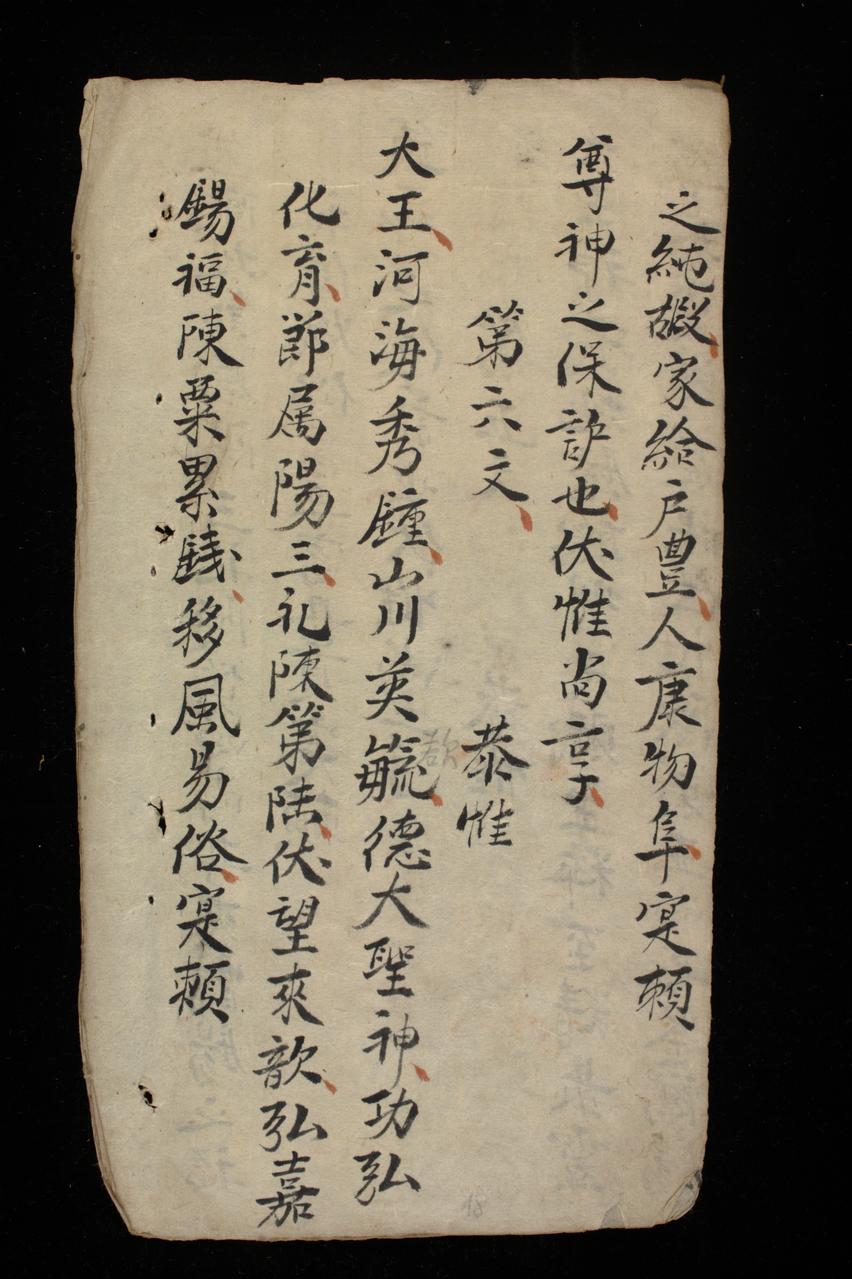 之純嘏家給戶豊人康物阜寔頼
尊神之保護也伏惟尚享
第六文 恭惟
大王河海秀鍾山川英毓德大聖神功弘
化育節属陽三礼陳第陆伏望來歆弘嘉
錫福陳粟累錢移風易俗寔頼